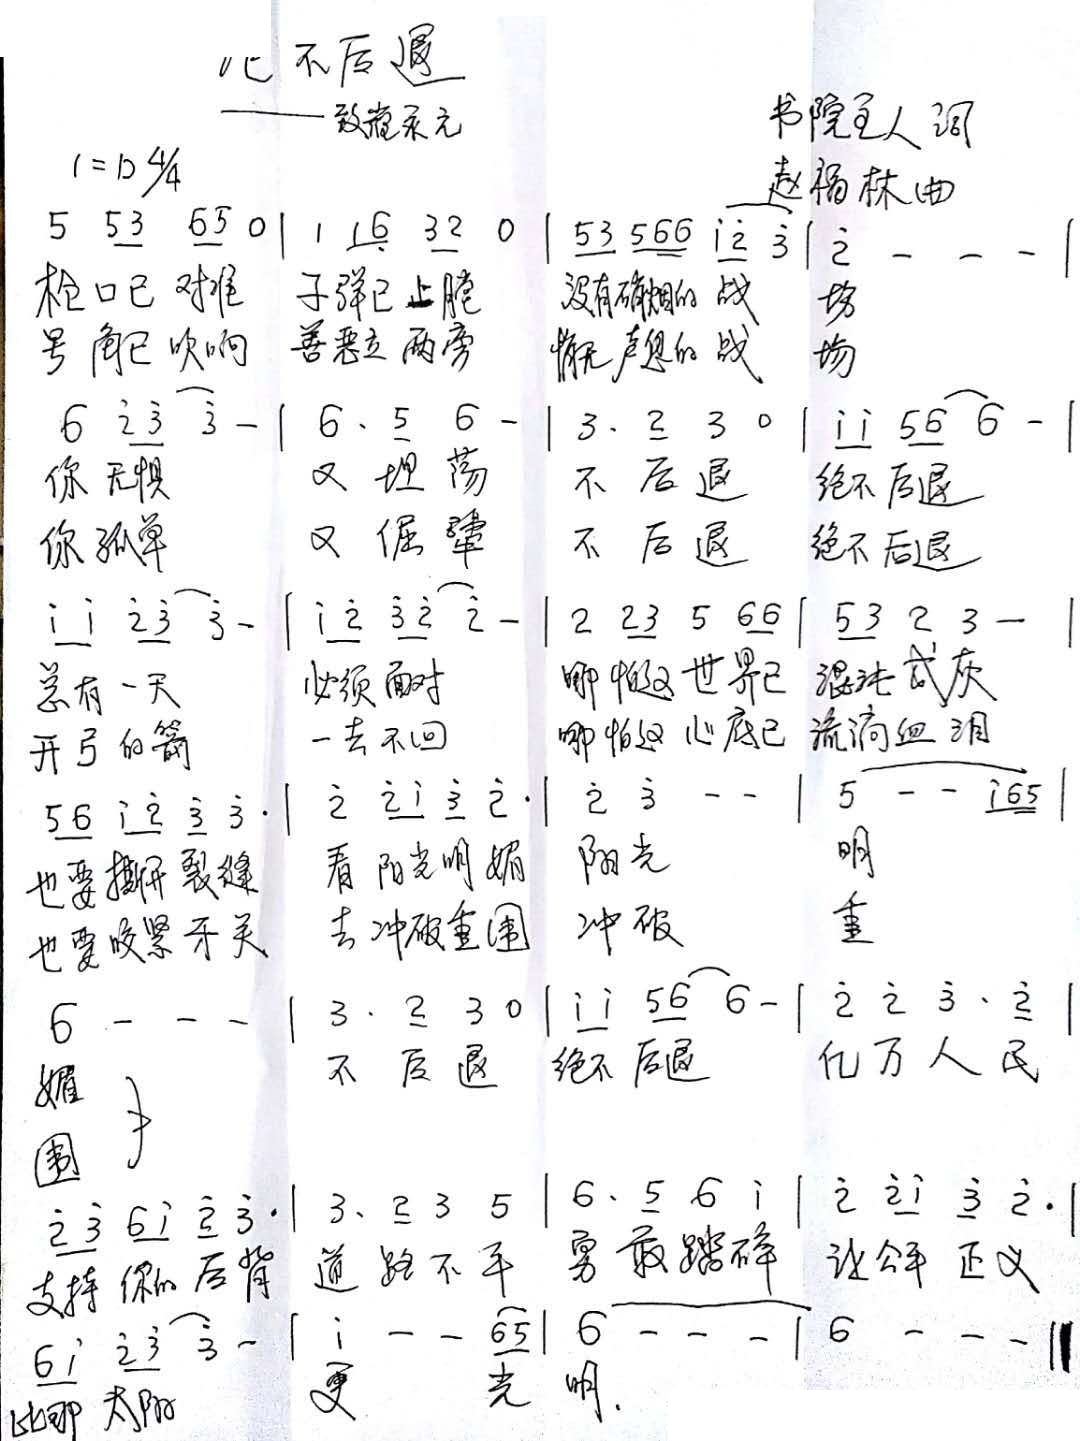 绝不后退
——致崔永元
书院主人词
1=D 4/4
赵福林曲
5 53 65 0 | 1 16 32 0 | 53 566 i̇2̇ 3̇ | 2̇ - - - |
枪口已对准 子弹已上膛 没有硝烟的战 场
号角已吹响 善恶立两旁 悄无声息的战 场
6 2̇3̇ 3̇ - | 6. 5 6 - | 3. 2 3 0 | i̇i̇ 56 6 - |
你无惧 又坦荡 不后退 绝不后退
你孤单 又倔犟 不后退 绝不后退
i̇i̇ 2̇3̇ 3̇ - | i̇2̇ 3̇2̇ 2̇ - | 2 23 5 66 | 53 2 3 - |
总有一天 必须面对 哪怕这世界已 混沌成灰
开弓的箭 一去不回 哪怕这心底已 流淌血泪
56 i̇2̇ 3̇ 3̇. | 2̇ 2̇i̇ 3̇ 2̇. | 2̇ 3̇ - - | 5 - - i̇65 |
也要撕开裂缝 看阳光明媚 阳光 明
也要咬紧牙关 去冲破重围 冲破 重
6 - - - | 3. 2 3 0 | i̇i̇ 56 6 - | 2̇ 2̇ 3̇. 2̇ |
媚 不后退 绝不后退 亿万人民
围
2̇3̇ 6i̇ 2̇ 3̇. | 3. 2 3 5 | 6. 5 6 i̇ | 2̇ 2̇i̇ 3̇ 2̇. |
支持你的后背 道路不平 勇敢踏碎 让公平正义
6i̇ 2̇3̇ 3̇ - | i̇ - - 65 | 6 - - - | 6 - - - ‖
比那太阳 更 光 明.